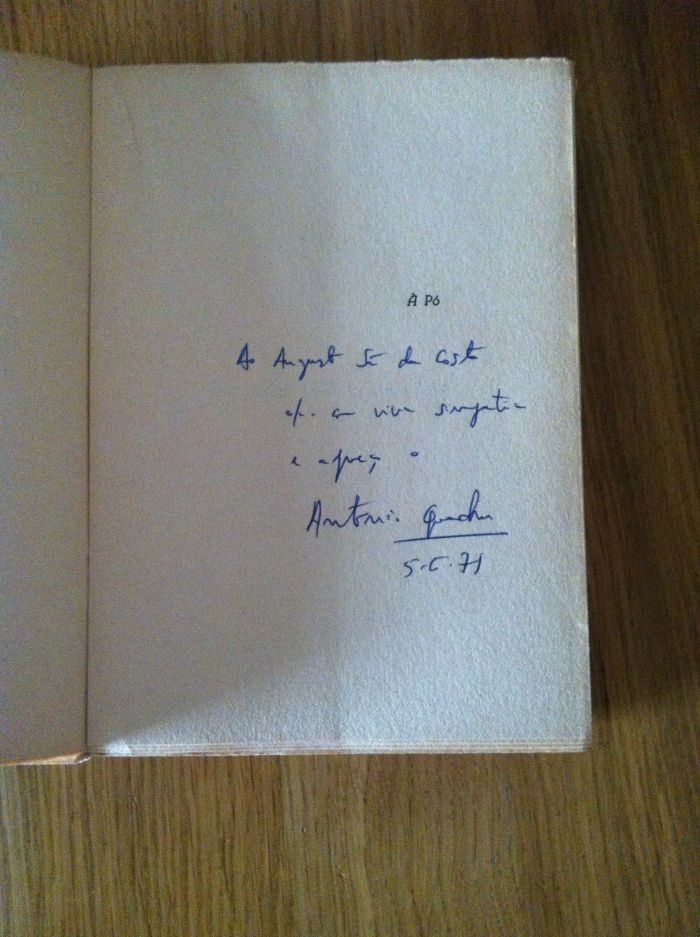 À PÓ
Ao August Sá da Costa
of. com viva simpatia
e apreço o
António Quadros
5.5.71